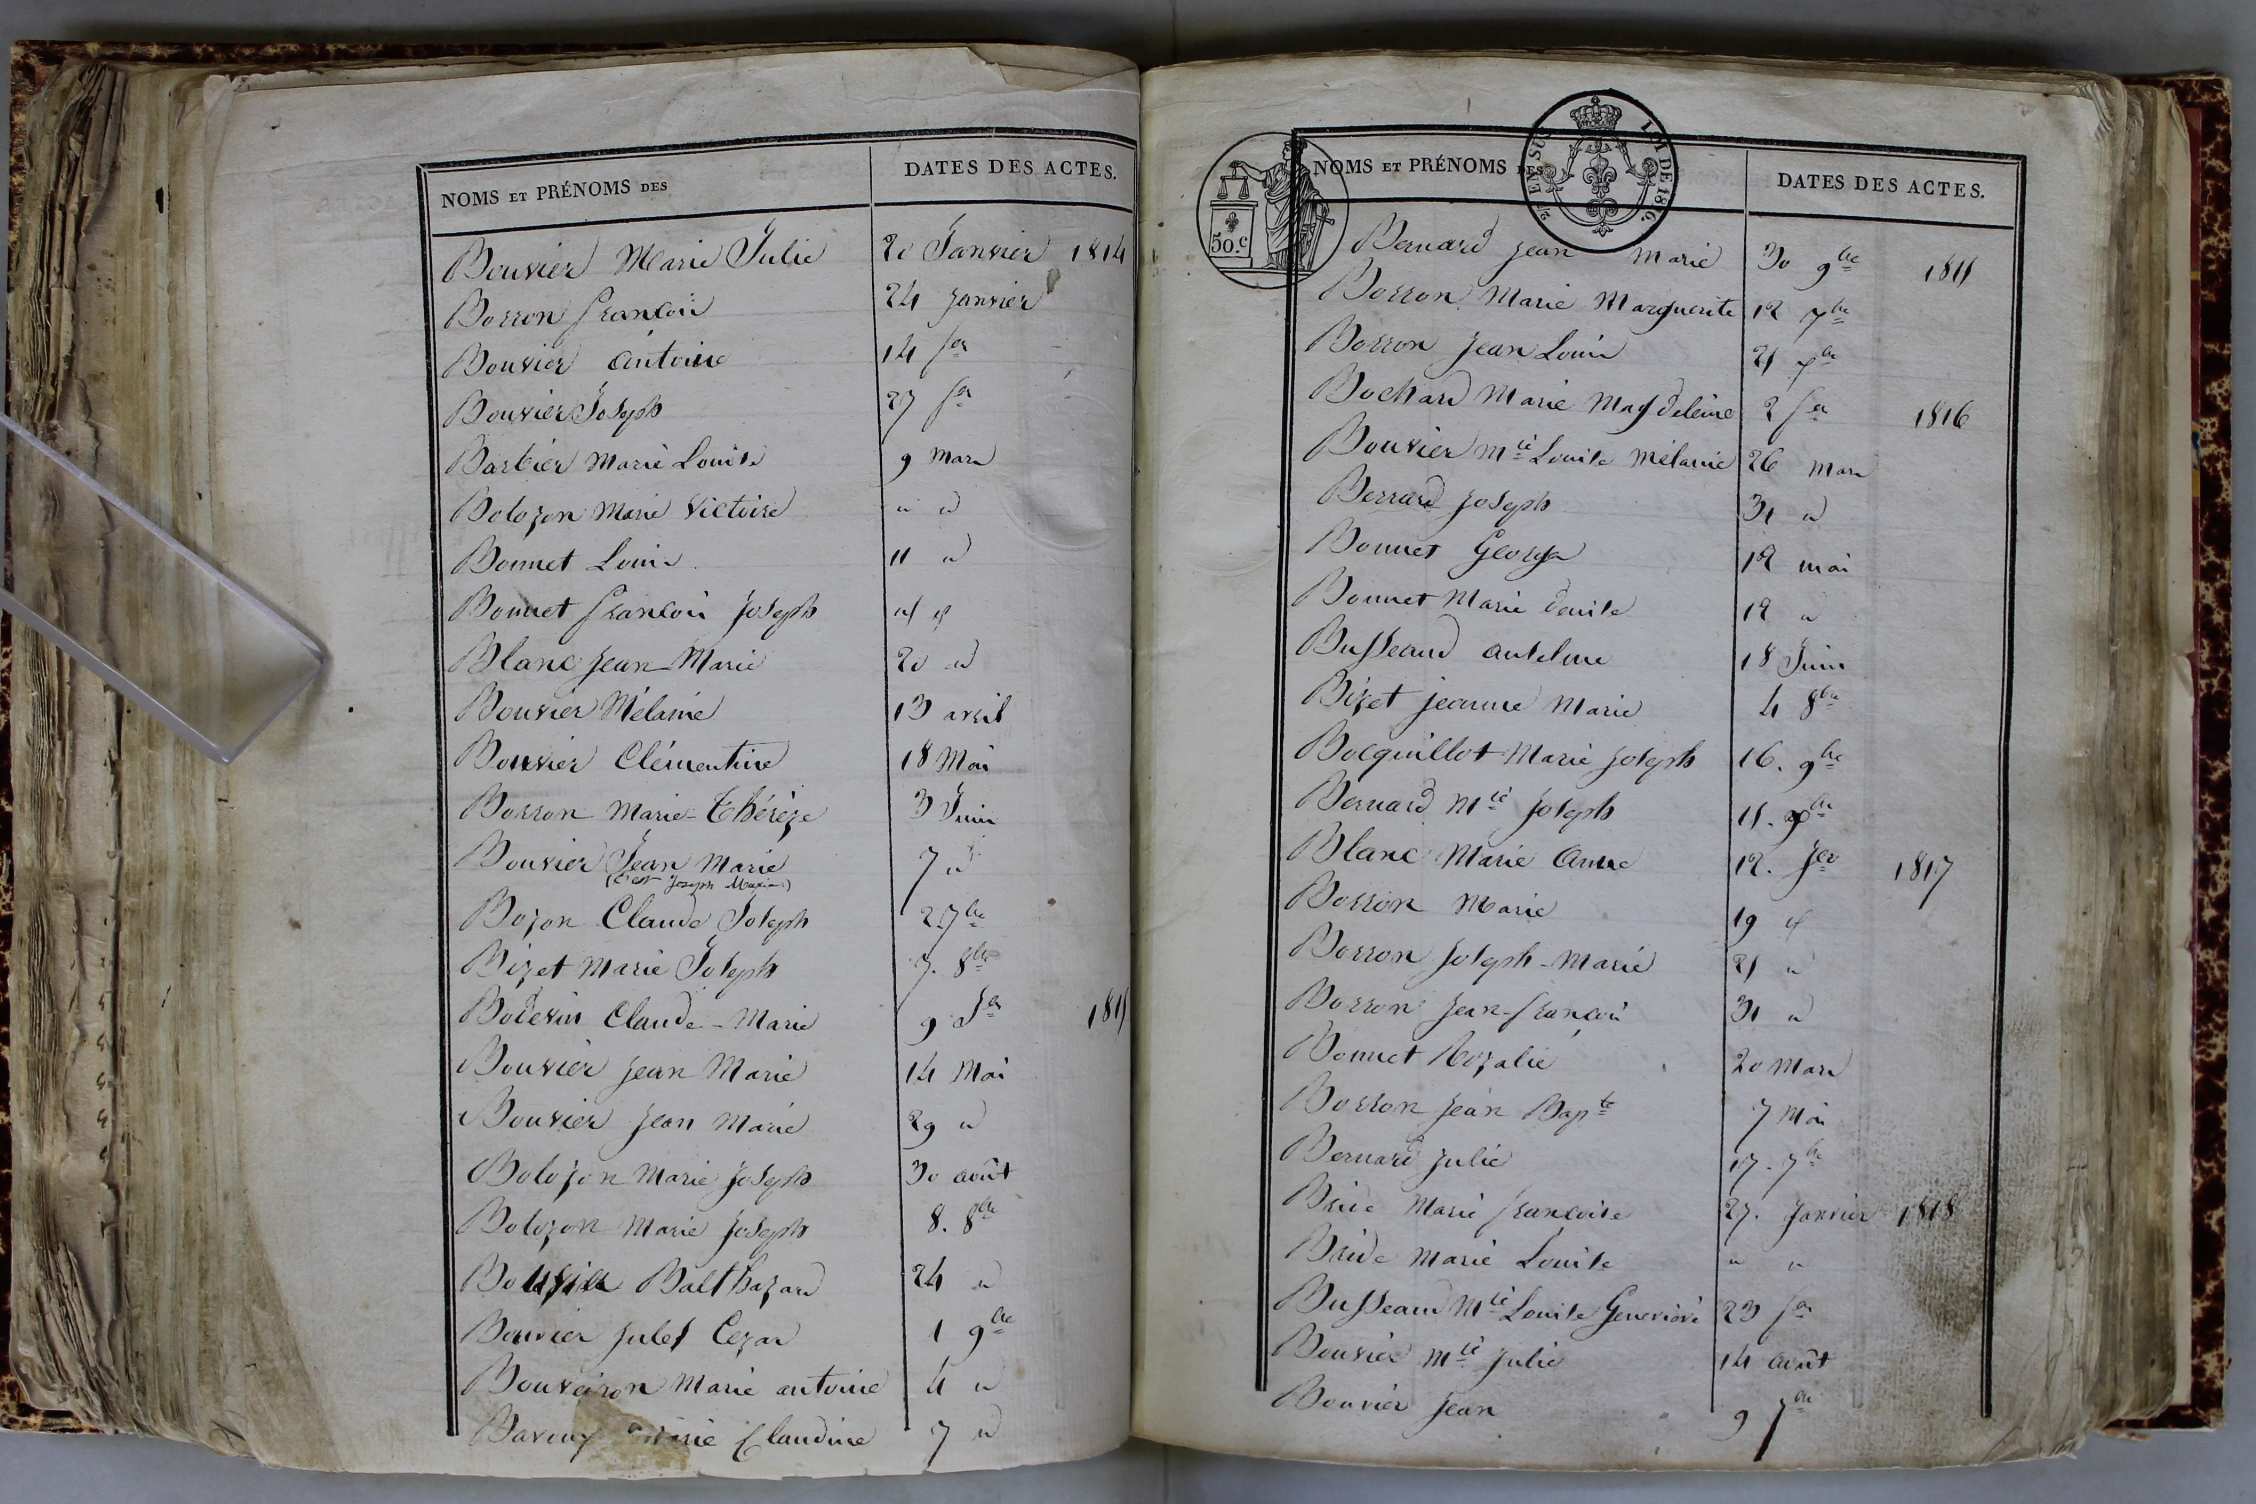 NOMS ET PRÉNOMS DES DATES DES ACTES.
Bouvier Marie Julie 20 Janvier 1814
Borron françois 24 Janvier
Bouvier antoine 14 fer
Bouvier Joseph 27 fer
Barbier Marie Louise 9 Mars
Bolozon Marie Victoire " "
Bonnet Louis 11 "
Bonnet françois Joseph
Blanc Jean Marie 20 "
Bouvier Mélanie 13 avril
Bouvier Clémentine 18 Mai
Borron Marie-Thérèze 3 Juin
Bouvier Jean Marie 7 "
(C'est Joseph Marie)
Bozon Claude Joseph 2 7bre
Bizet Marie Joseph 7. 8bre
Claude-Marie 9 1815
Bouvier Jean Marie 14 Mai
Bouvier Jean Marie 29 "
Bolozon Marie Joseph 30 août
Bolozon Marie Joseph 8. 8bre
Balthazard 24 "
Bouvier Jules Cezar 1 9bre
Bouveiron Marie antoine 4 "
Marie Claudine 7 "
50.c
EN SUS LOI DE 1816
NOMS ET PRÉNOMS DES DATES DES ACTES.
Bernard Jean Marie 30 9bre 1815
Borron Marie Marguerite 12 7bre
Borron Jean Louis 21
Bochard Marie Magdeleine 2 fer 1816
Bouvier Mie Louise Mélanie 26 Mars
Berrard Joseph 31 "
Bonnet George 12 mai
Bonnet Marie Denise 12 "
Busseaud antelme 18 Juin
Bizet Jeanne Marie 4 8bre
Bocquillot Marie Joseph 16. 9bre
Bernard Mie Joseph
Blanc Marie Anne 12. Jer 1817
Borron Marie 19 "
Borron Joseph-Marie 21 "
Borron Jean-françois 31 "
Bonnet Rozalie 20 Mars
Borron Jean Bapte 7 Mai
Bernard Julie 17. 7bre
Bride Marie françoise 27. Janvier 1818
Bride Marie Louise " "
Busseaud Mie Louise Geneviève 23 fer
Bouvier Mie Julie 14 août
Bouvier Jean 9 7bre